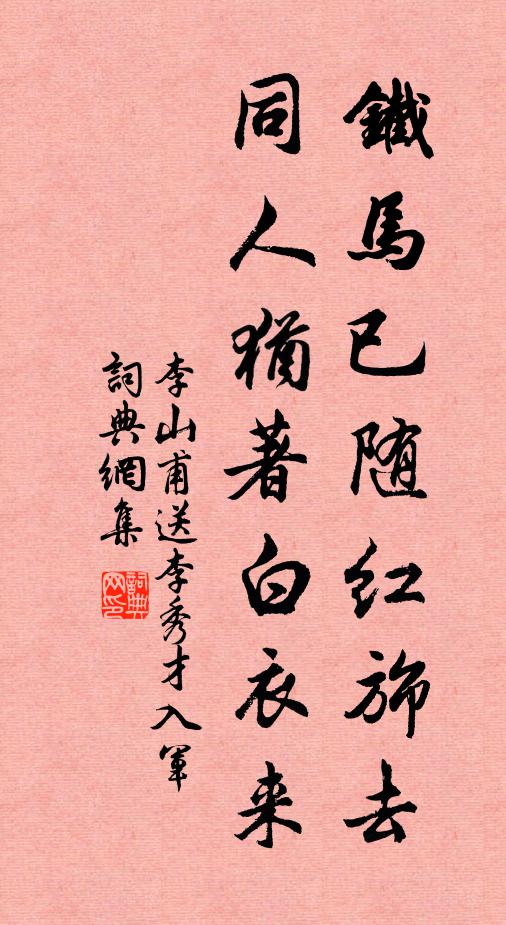 鐵馬已随红斾去
同人猶著白衣来
李山甫送李秀才入軍
詞典網集
詞典網印